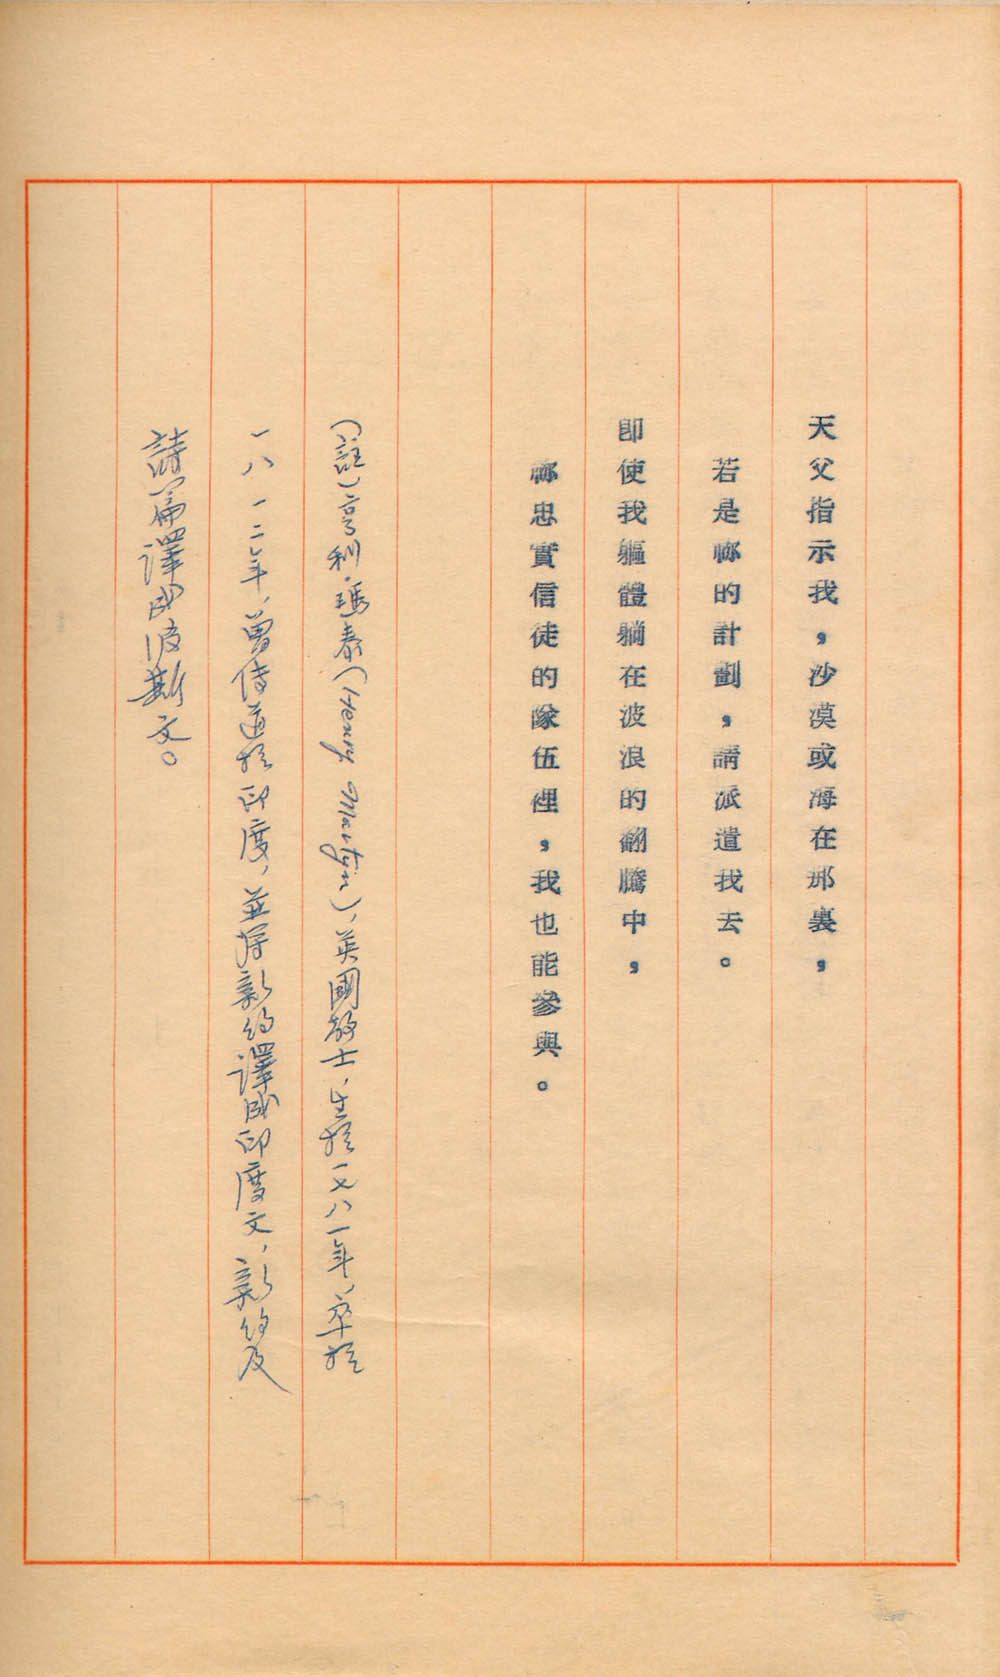 天父指示我，沙漠或海在那裏，
若是祢的計劃，請派遣我去。
即使我軀體躺在波浪的翻騰中，
祢忠實信徒的隊伍裡，我也能參與。
(註)亨利·瑪泰(Henry Martyn)，英國教士，生於一七八一年，卒於
一八一二年，曾傳道於印度，並將新約譯成印度文，新約及
詩篇譯成波斯文。